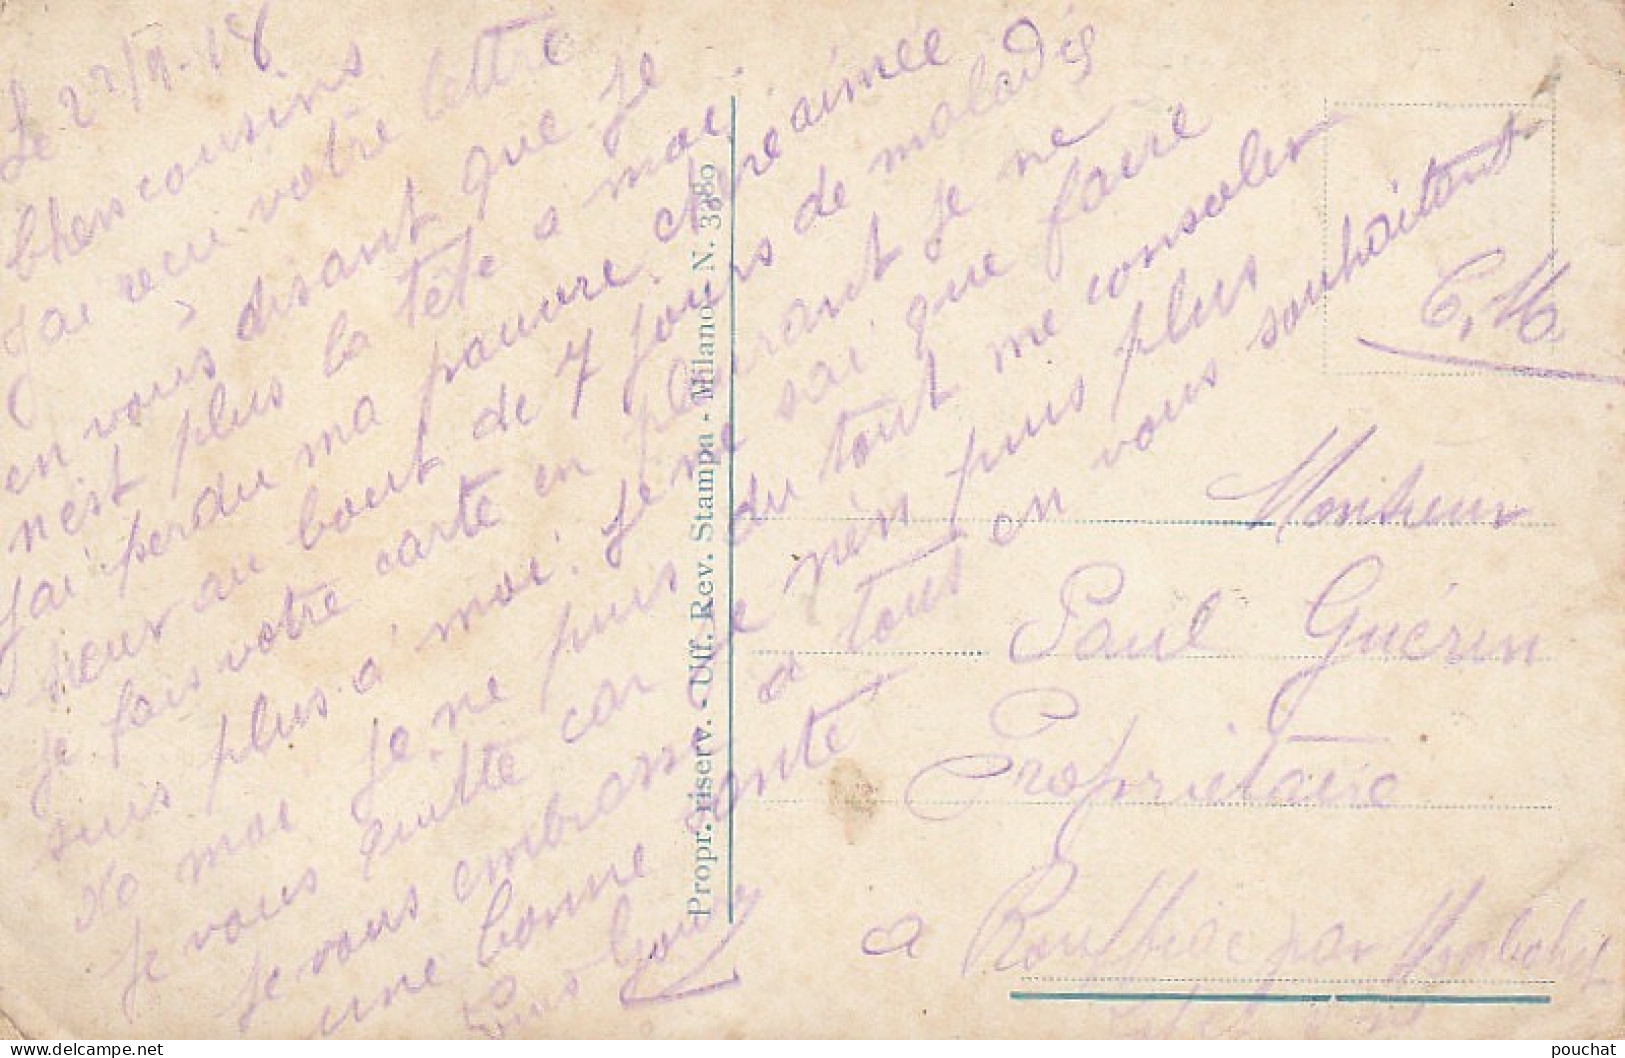 Le 22/9-18
bien cousins
J'ai recu votre lettre
en vous disant que Je
n'est plus la tête a moi
J'ai perdu ma pauvre et aimée
seur au bout de 7 jours de maladis
Je fais votre carte en pleurant Je ne
suis plus a' moi. Je ne sai que faire
Je ne puis du tout me consoler
moi
Je vous quitte car Je n'en puis plus
Je vous embrasse tous en vous souhaitant
une bonne santé a tous
C. M.
Monsieur
Paul Guérin
Propriétaire
a Rouffiac par
Propr. riserv. - Uff. Rev. Stampa - Milano - N. 3389
pouchat